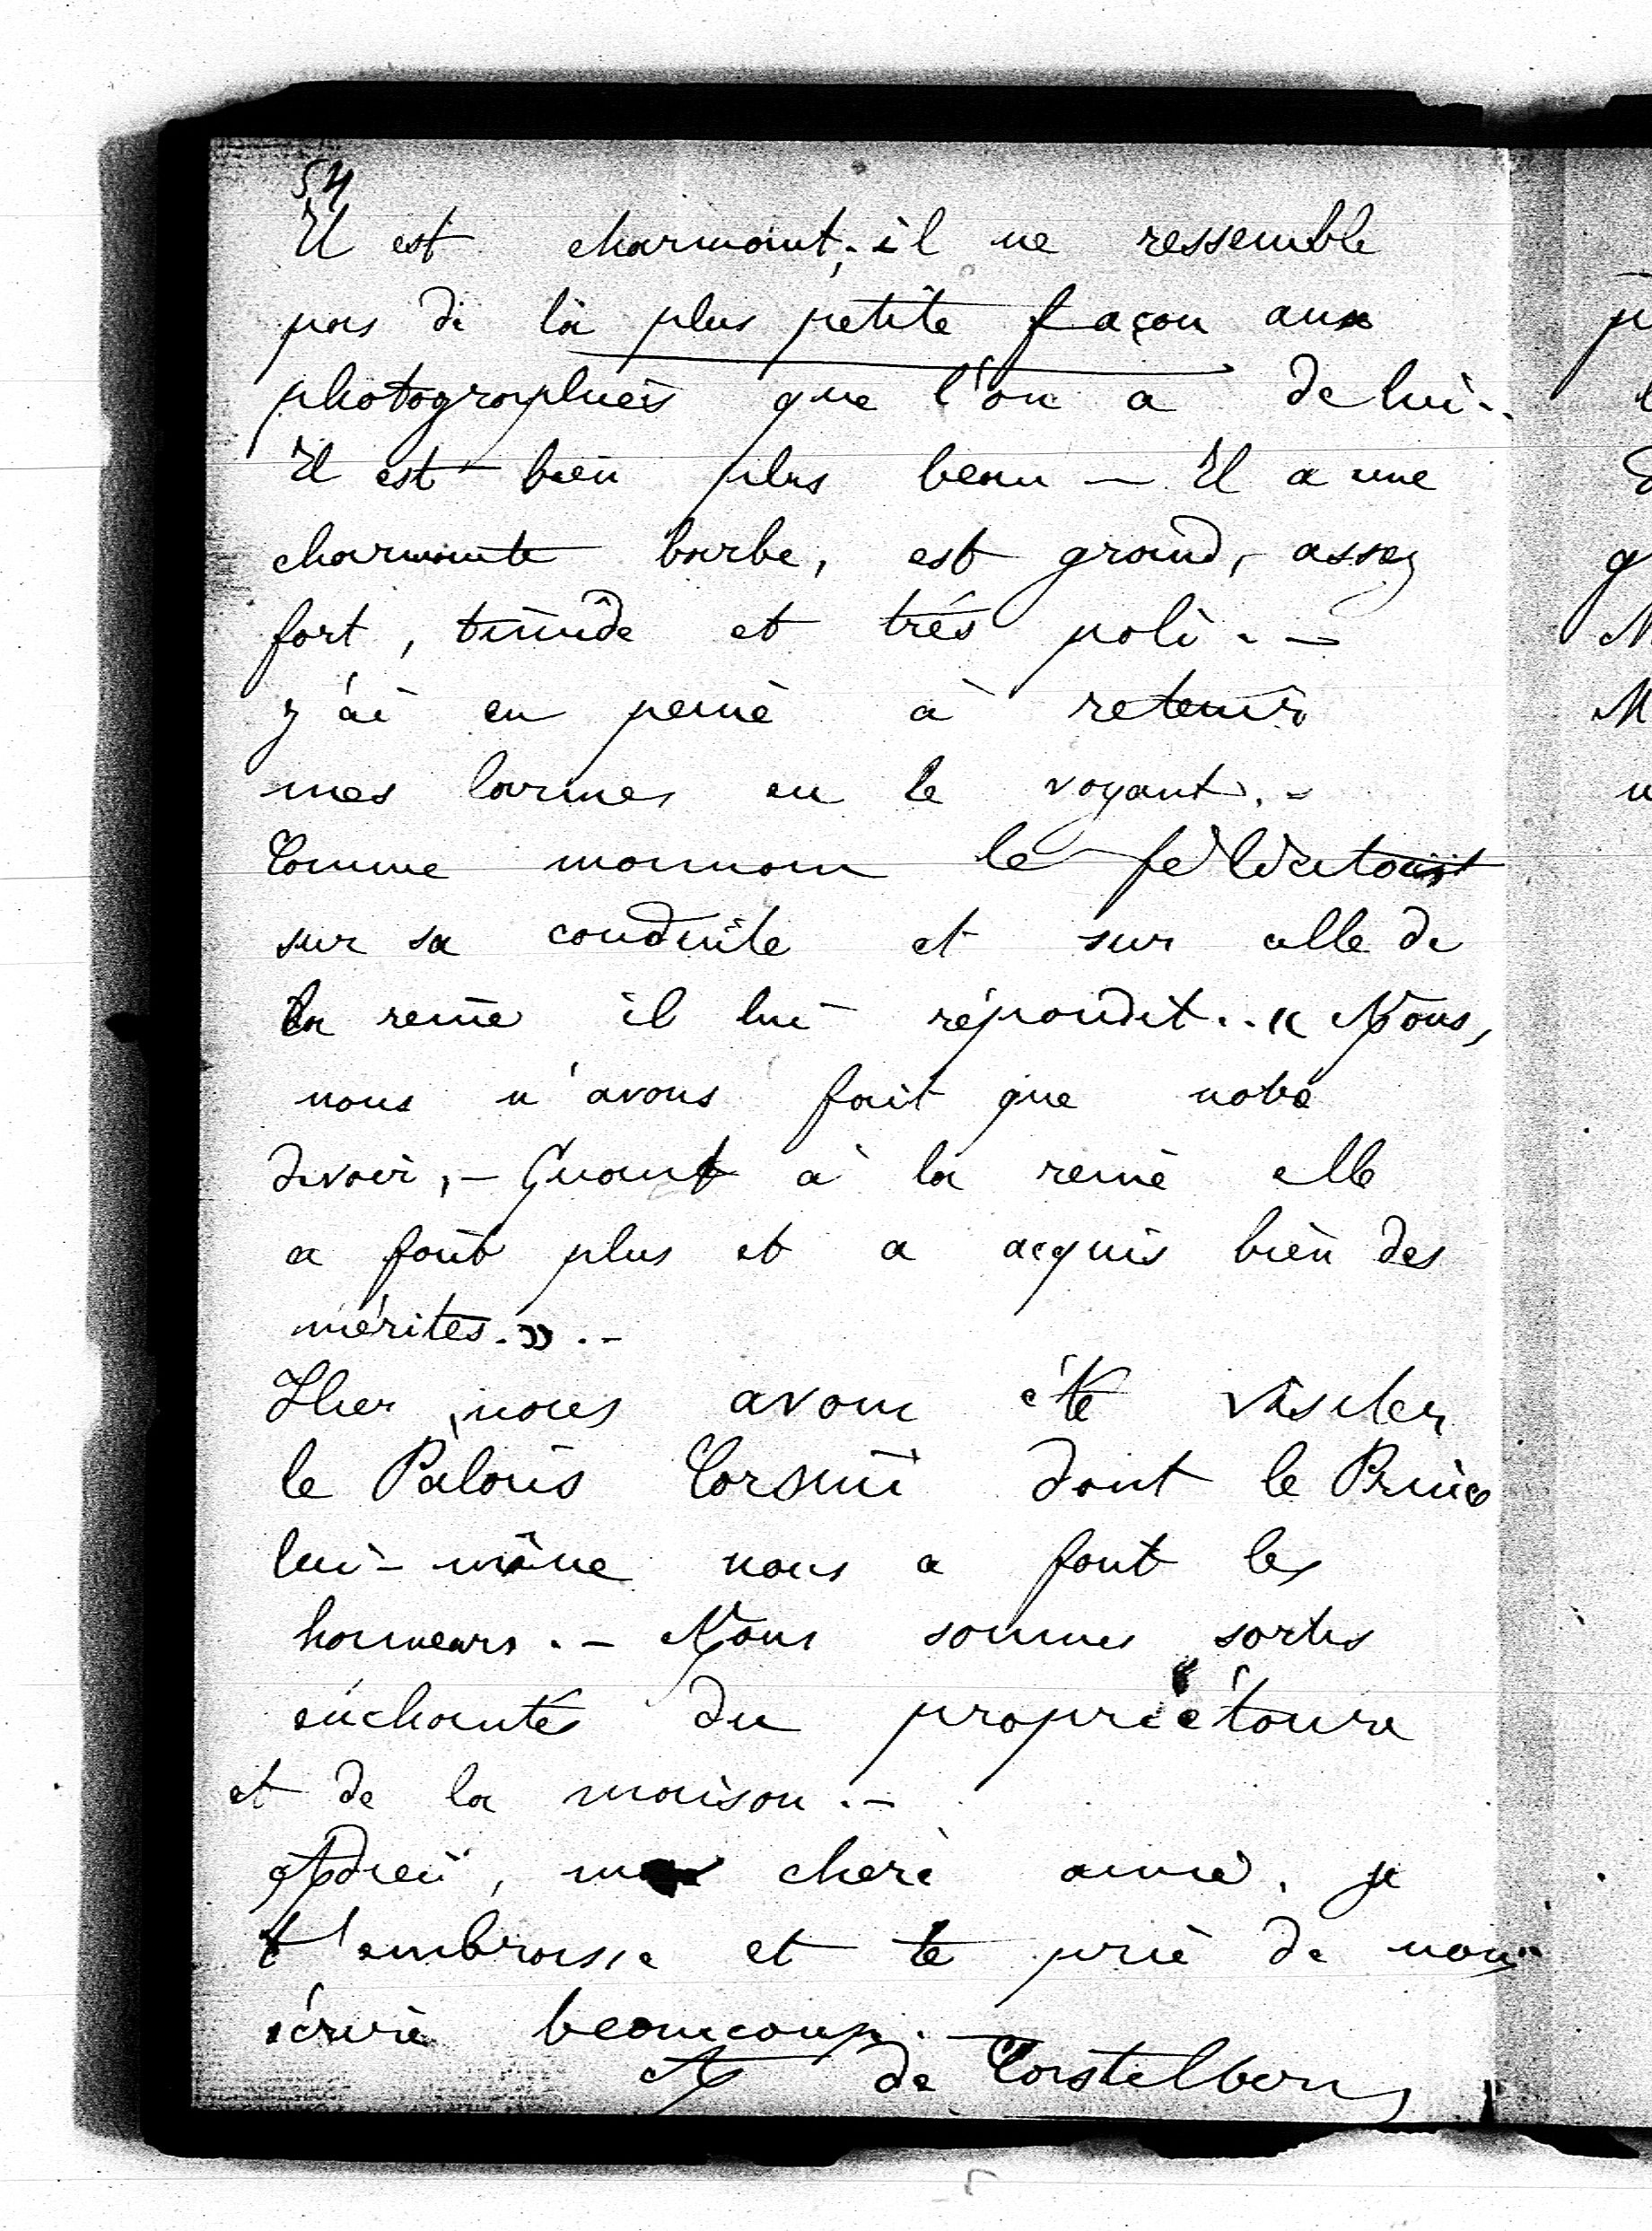 54
Il est charmant; il ne ressemble
pas de la plus petite façon aux
photographies que l'on a de lui..
Il est bien plus beau — Il a une
charmante barbe, est grand, assez
fort, timide et trés poli. —
j'ai eu peine à retenir
mes larmes en le voyant. -
Comme maman le félicitait
sur sa conduite et sur celle de
la reine il lui répondit.. « Nous,
nous n'avons fait que notre
devoir, - Quant à la reine elle
a fait plus et a acquis bien des
mérites.» . -
Hier, nous avons été visiter
le Palais Corsini dont le Prince
lui-même nous a fait les
honneurs. - Nous sommes sortis
enchantés du propriétaire
et de la maison. -
Adieu, ma chère amie, je
t'embrasse et te prie de nous
écrire beaucoup. —
A de Castelbourg